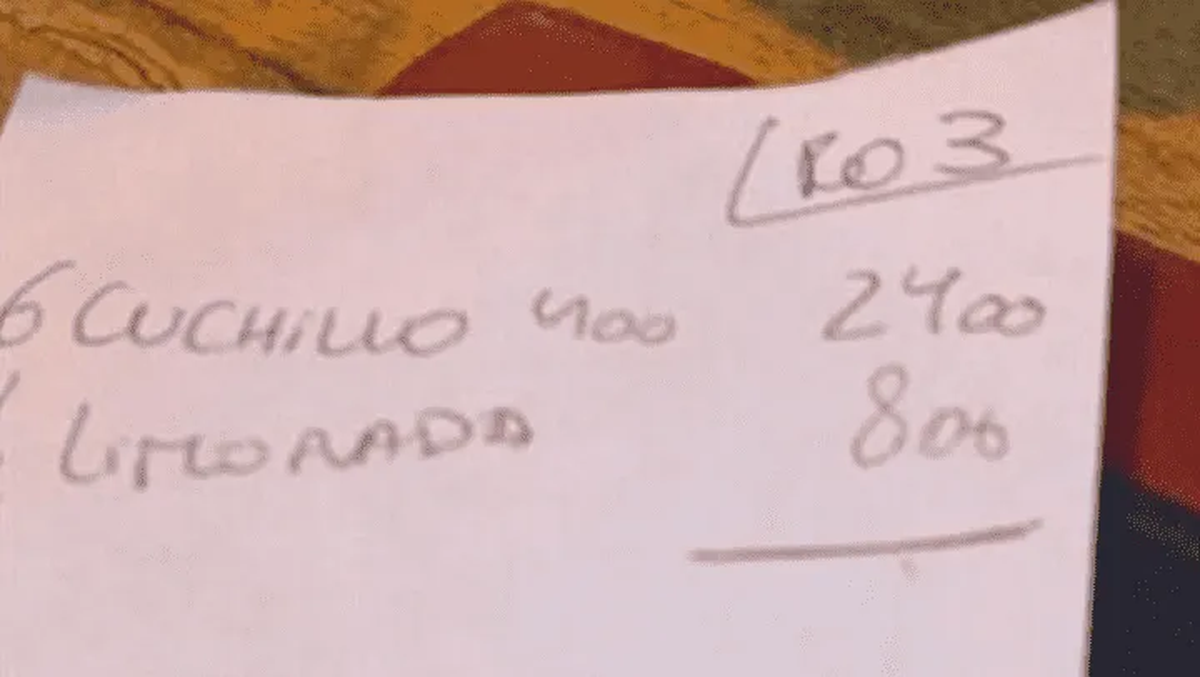 RO 3
6 CUCHILLO 400 2400
LIMONADA 800